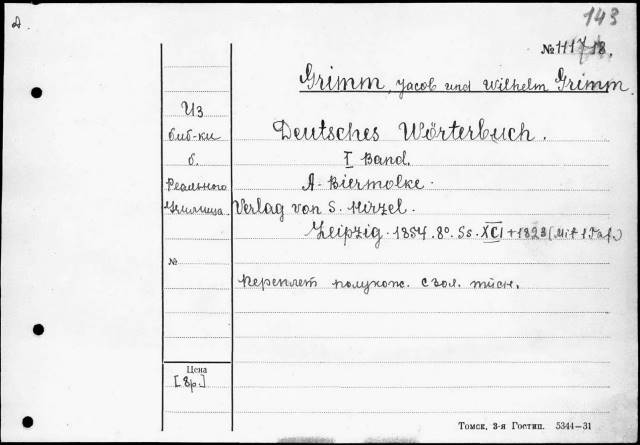 д.
143
№ 11178.
Grimm, Jacob und Wilhelm Grimm.
Из
биб-ки
б.
Реального
Училища.
Deutsches Wörterbuch.
I Band.
A - Biermolke.
Verlag von S. Hirzel.
Leipzig. 1854. 8°. Ss. XCI + 1823 (Mit 1 Taf.)
№
переплет полукож. с зол. тисн.
Цена
[8р.]
Томск, 3-я Гостип. 5344—31